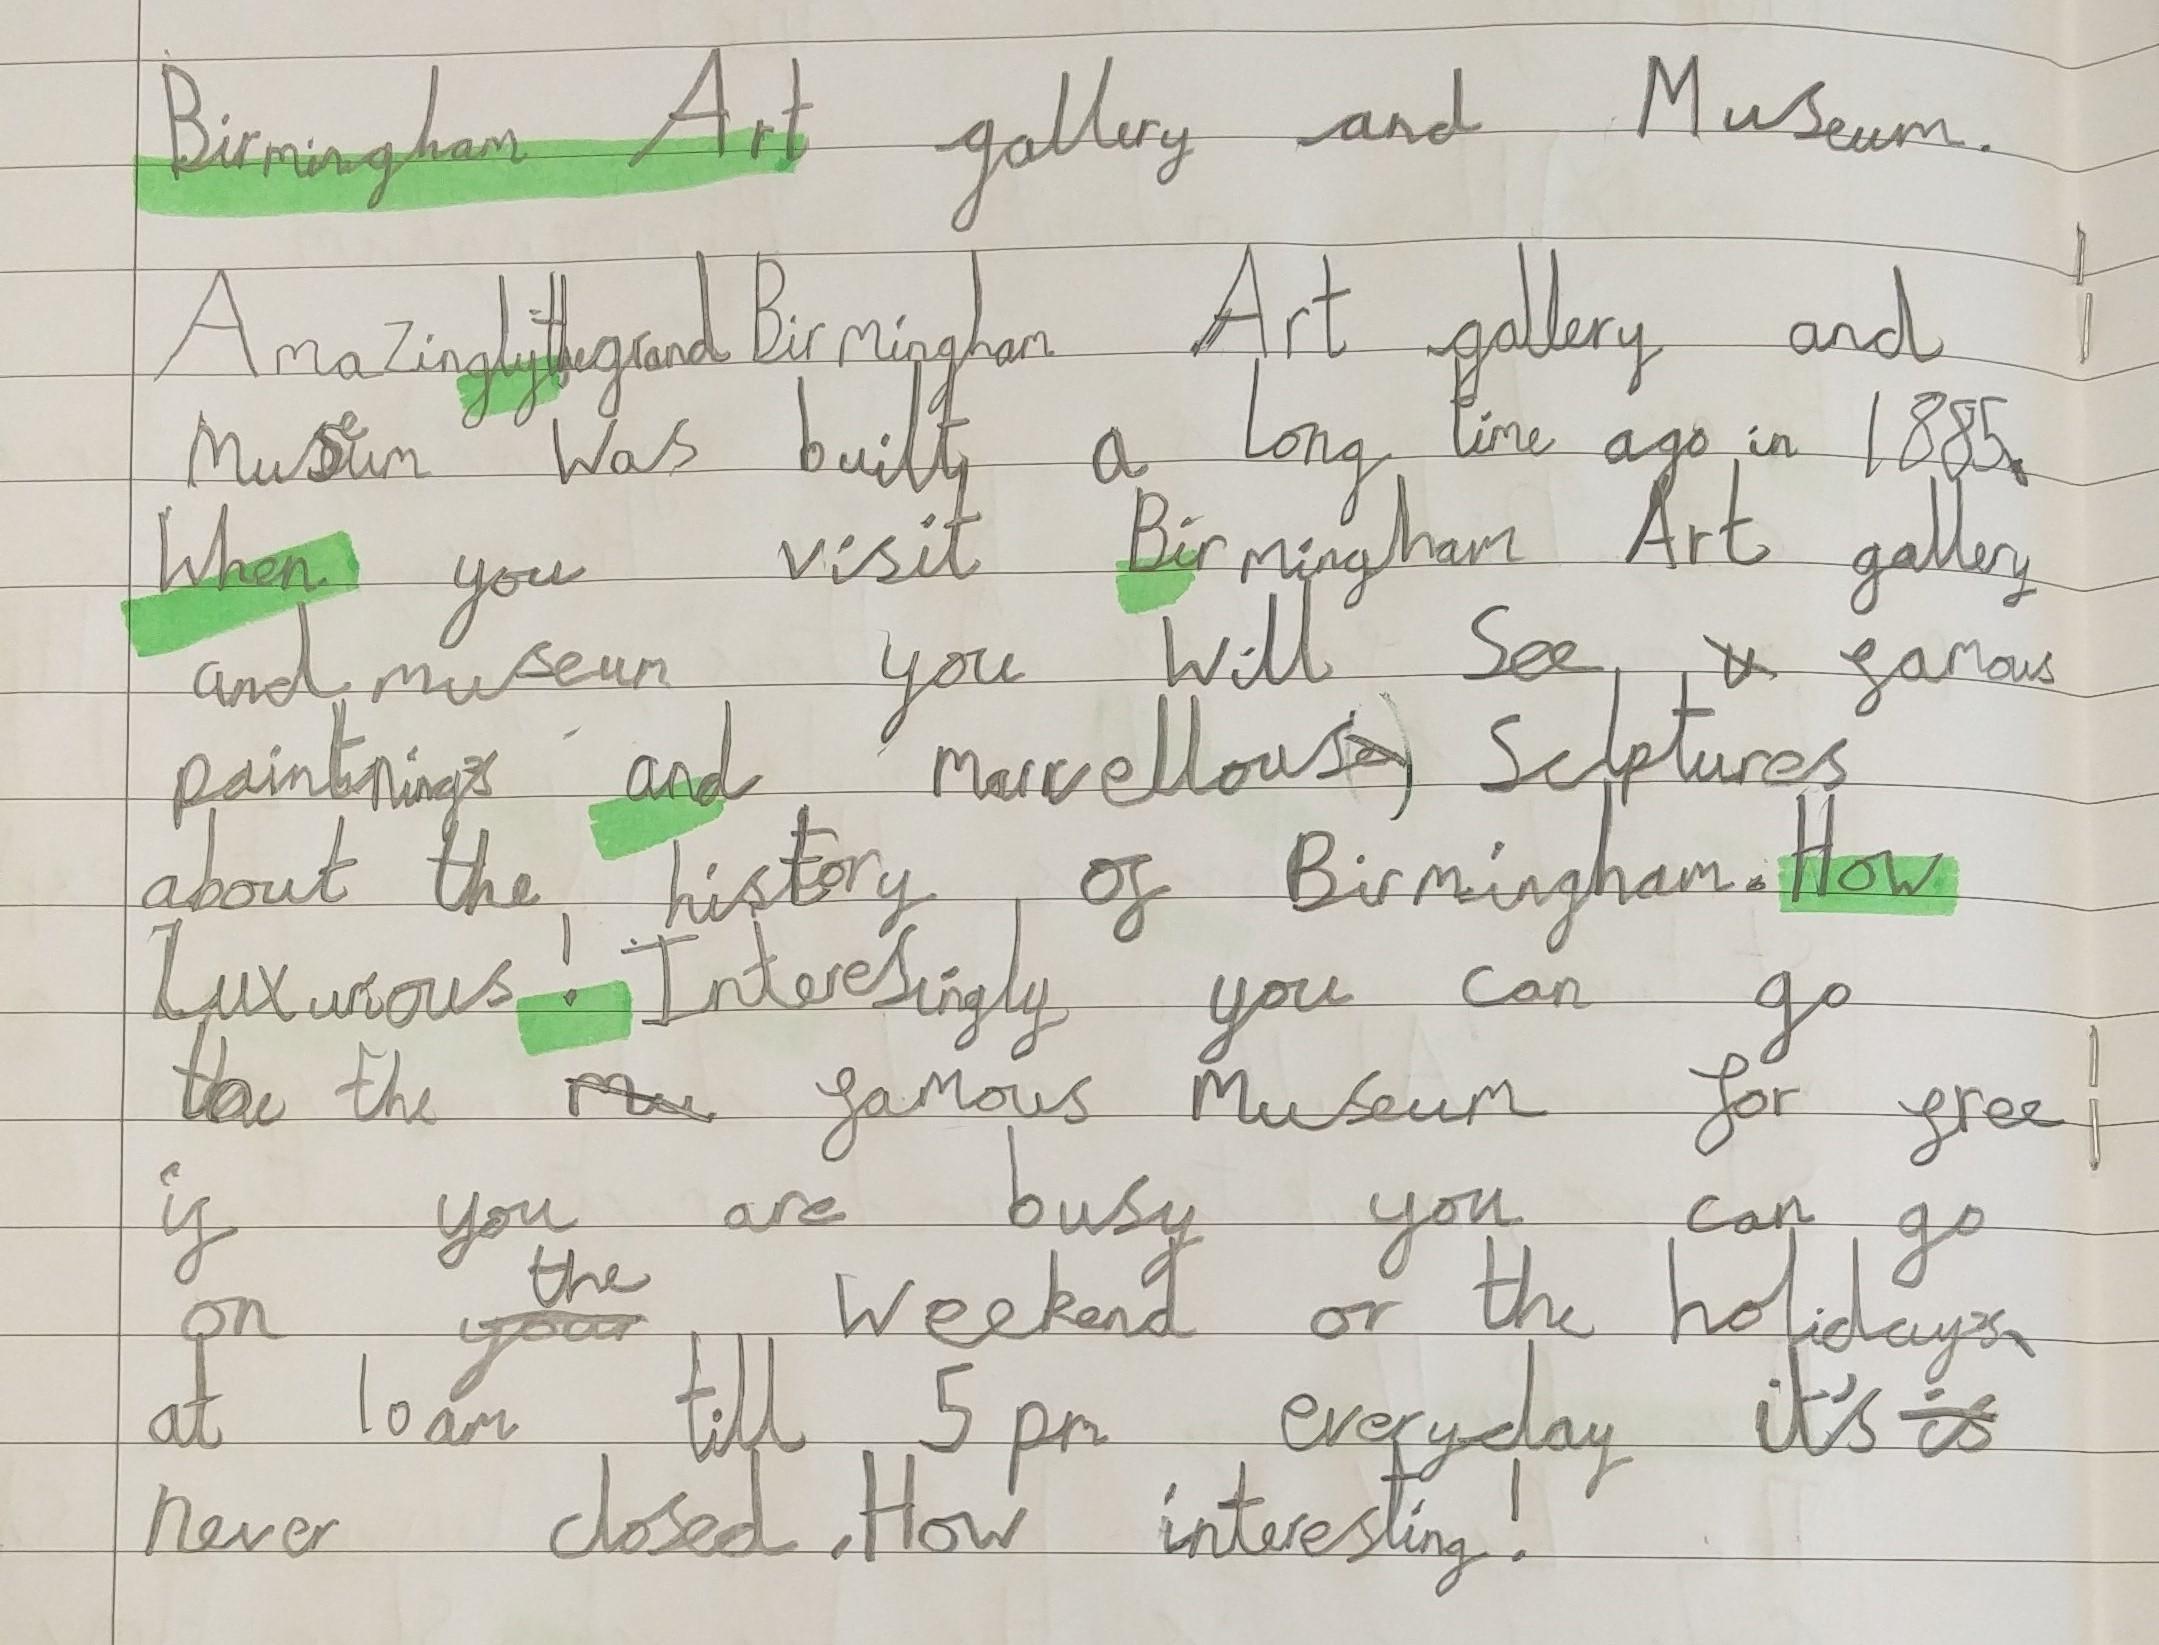 Birmingham Art gallery and Museum.
Amazingly the grand Birmingham Art gallery and
Museum was built a long time ago in 1885.
When you visit Birmingham Art gallery
and museum you will see famous
paintnings and marvellous sclptures
about the history of Birmingham. How
Luxurious! Interesingly you can go
to the famous Museum for free
if you are busy you can go
on the weekend or the holidays
at 10am till 5pm everyday it's
never closed. How interesting!